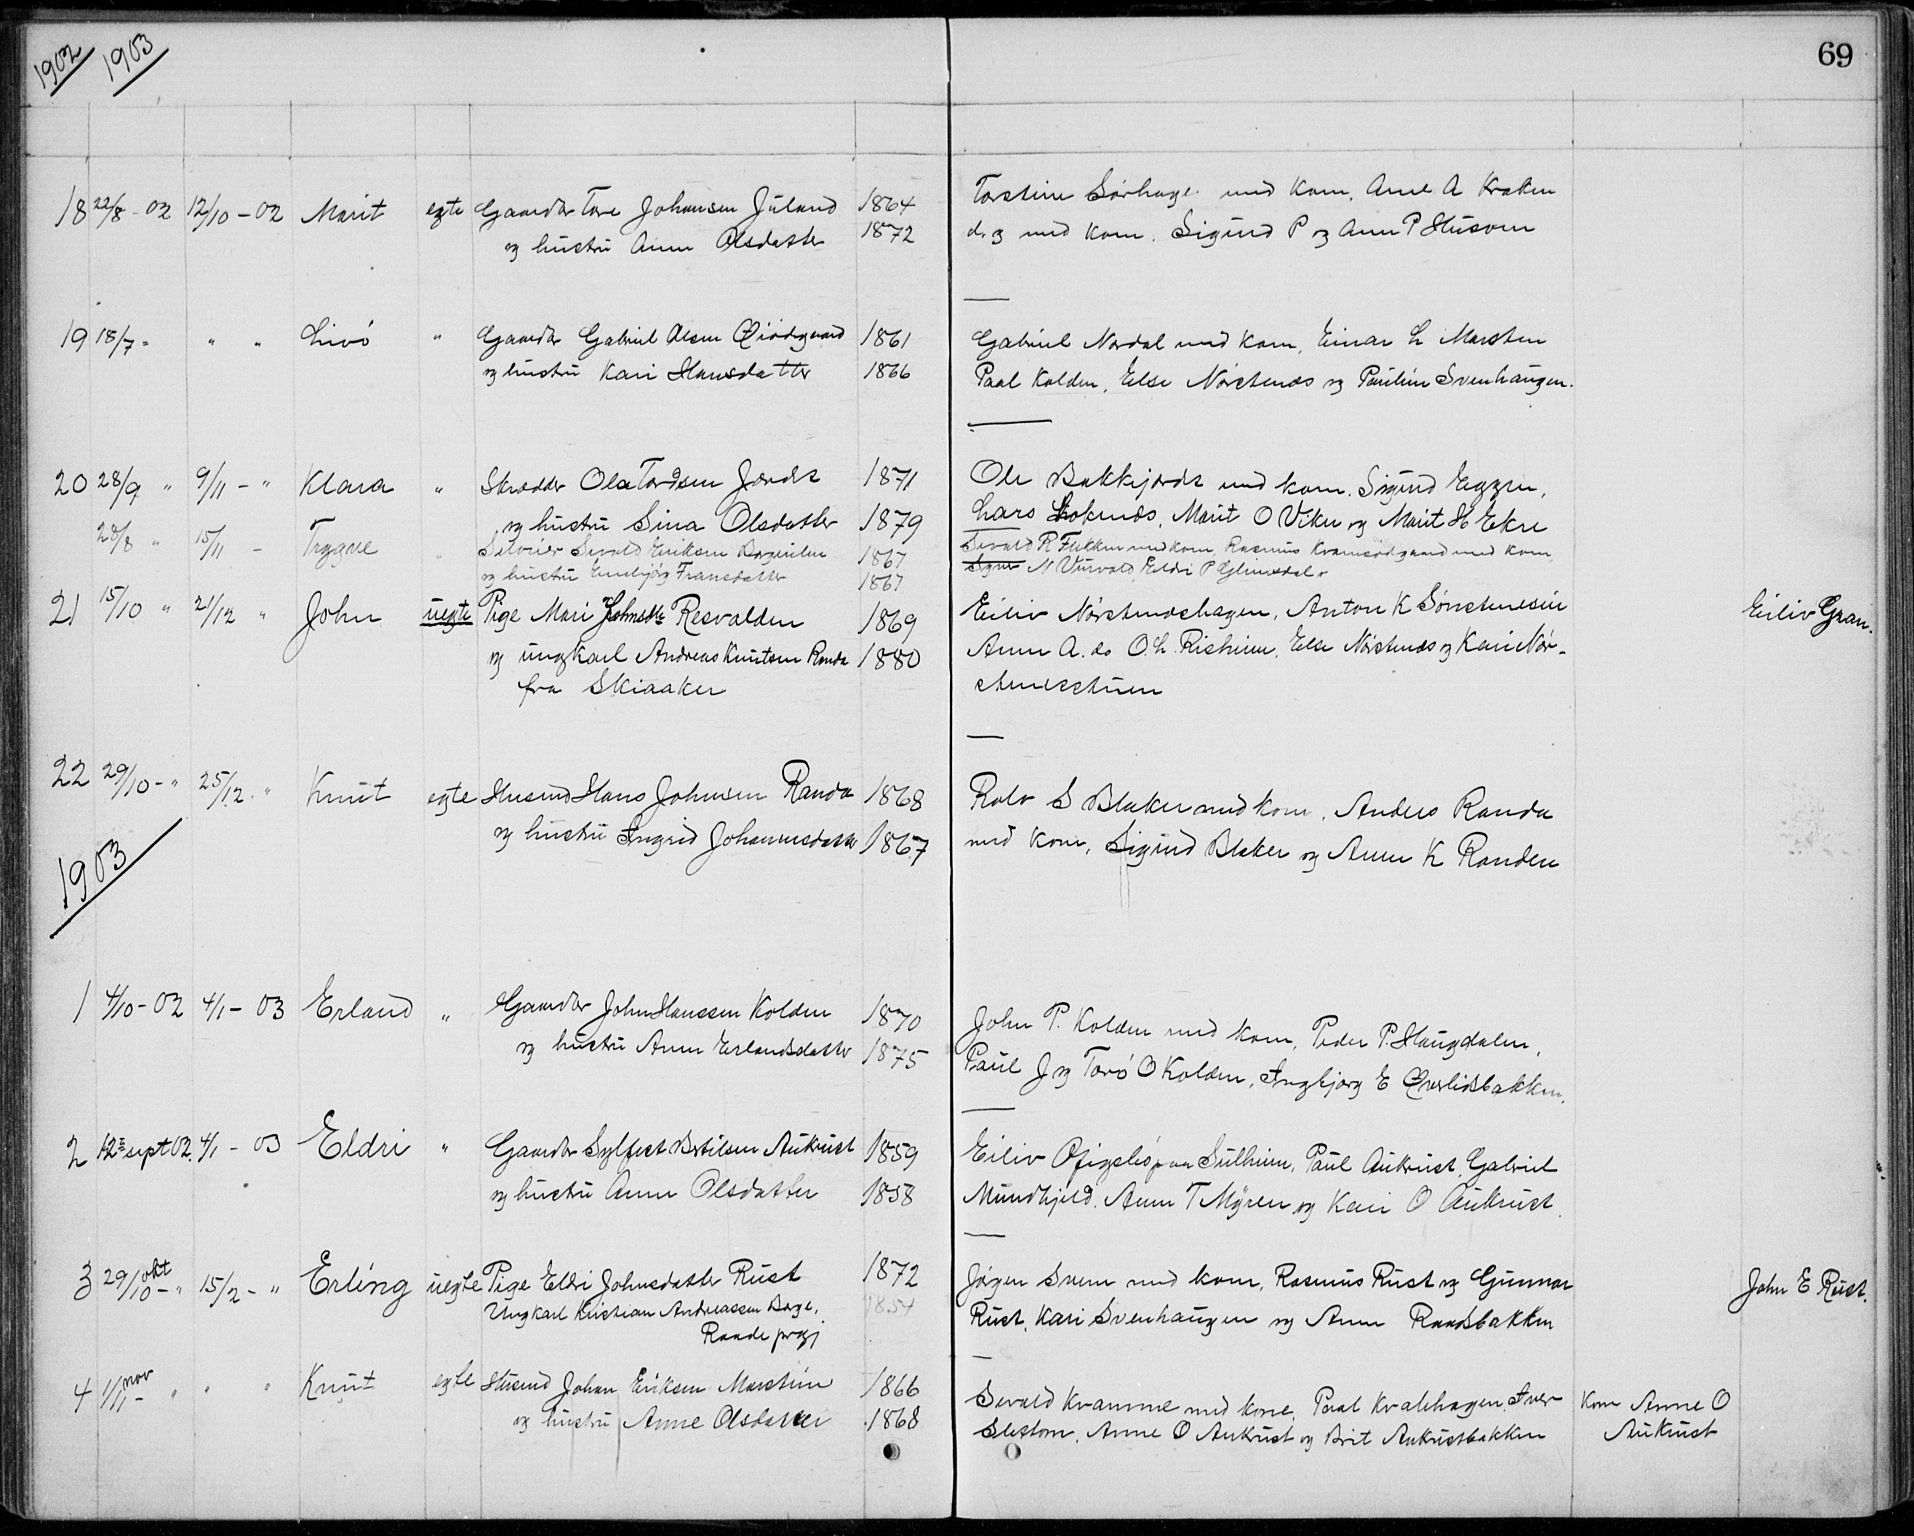 1902 1903
69
18 22/8 - 02 12/10 - 02 Marit egte Gaardbr Tore Johansen Juland 1864
og hustru Anne Olsdatter 1872
Torstein Sørhage med kone, Anne A Kroken
med kone. Sigurd P og Anne P Husom
19 18/7 - " " Livó " Gaardbr Gabriel Olsen 1861
og hustru Kari Hansdatter 1866
Gabriel Nordal med kone, Einar L Marsten
Paal Kolden, Else Nørstenes og Pauline Svenhaugen.
20 28/9 " 9/11 - " Klara " Skrædder Ola Tordsen Jordet 1871
og hustru Sina Olsdatter 1879
Ole Bakkejordt med kone. Sigurd Eggen,
Lars Lokenes, Marit O Viken og Marit H Ekre
28/8 " 15/11 - Trygve " Sevald Eriksen 1867
og hustru Fransdatter 1867
Sevald R Flekken med kone, Rasmus med kone
N Eldri P
21 15/10 " 21/12 " John uegte Pige Mari Johnsdtr Resvalden 1869
og ungkarl Andreas Knutsen Randa 1880
fra Skiaaker
Eiliv Nørsteneshagen, Anton K
Anne A. do O. L. Risheim, Else Nørstenes og Kari Nør-
stenesstuen
Eiliv Gran.
22 29/10 - " 25/12 " Knut egte Husmd Hans Johnsen Randa 1868
og hustru Ingrid Johannesdatter 1867
Rolv S Blaker med kone, Anders Randa
med kone, Sigrid Blaker og Anne K Randen
1903
1 4/10 - 02 4/1 - 03 Erland " Gaardbr John Hanssen Kolden 1870
og hustru Anne Erlandsdatter 1875
John P. Kolden med kone, Peder P. Haugdalen,
Paul J og Toró O Kolden, Ingbjørg E Øverlidsbakken.
2 12te sept 02. 4/1 - 03 Eldri " Gaardbr Sylfest Bertilsen Aukrust 1859
og hustru Anne Olsdatter 1858
Eiliv Ofigsbó paa Sulheim, Paul Aukrust, Gabriel
Mundhjeld. Anne T Mýren og Kari O Aukrust.
3 29/10 okt - " 15/2 - " Erling uegte Pige Eldri Johnsdatter Rust 1872
Ungkarl Kristian Andreassen Berge, 1854
Raade prgj
Jørgen Svem med kone, Rasmus Rust og Gunnar
Rust, Kari Svenhaugen og Anne Raadsbakken
John E Rust.
4 1/11 nov - " " " Knut egte Husmd Johan Eriksen Marstein 1866
og hustru Anne Olsdatter 1868
Sevald Kvamme med kone, Paal Kvalehagen, Iver
Slettom, Anne O Aukrust og Brit Aukrustbakken
Kone Anne O
Aukrust